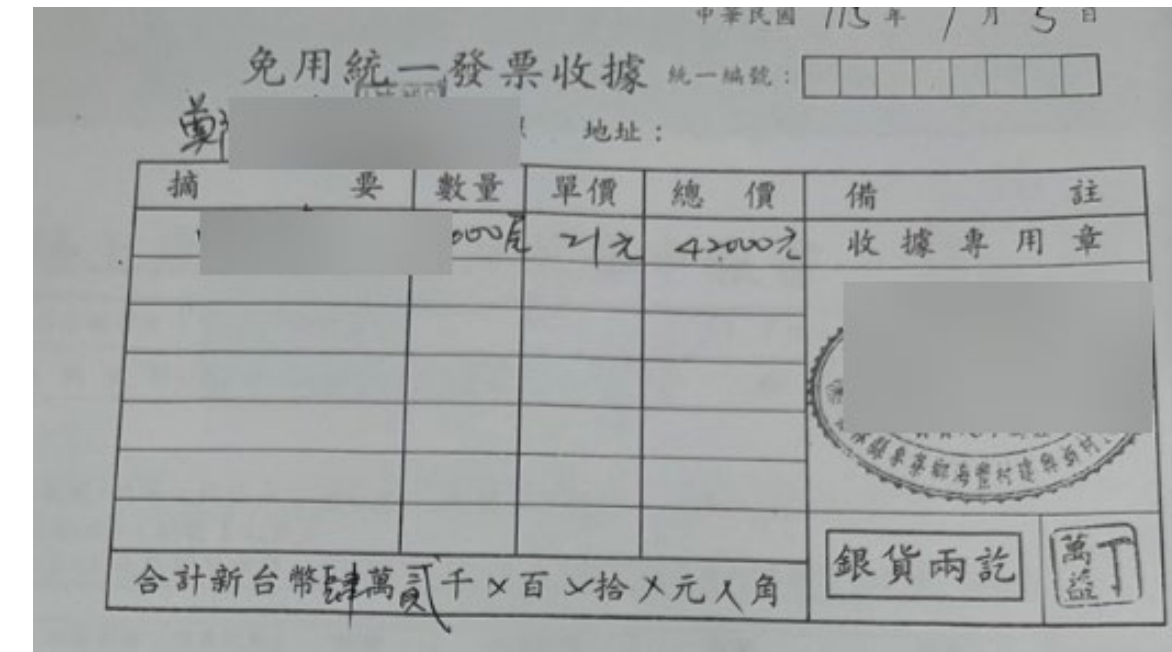 中華民國 115 年 1 月 5 日
免用統一發票收據 統一編號：
鄭 地址：
摘要 數量 單價 總價 備註
000尾 21元 42000元 收據專用章
縣東港鄉海豐村建興
合計新台幣肆萬貳千×百×拾×元×角
銀貨兩訖
丁萬益